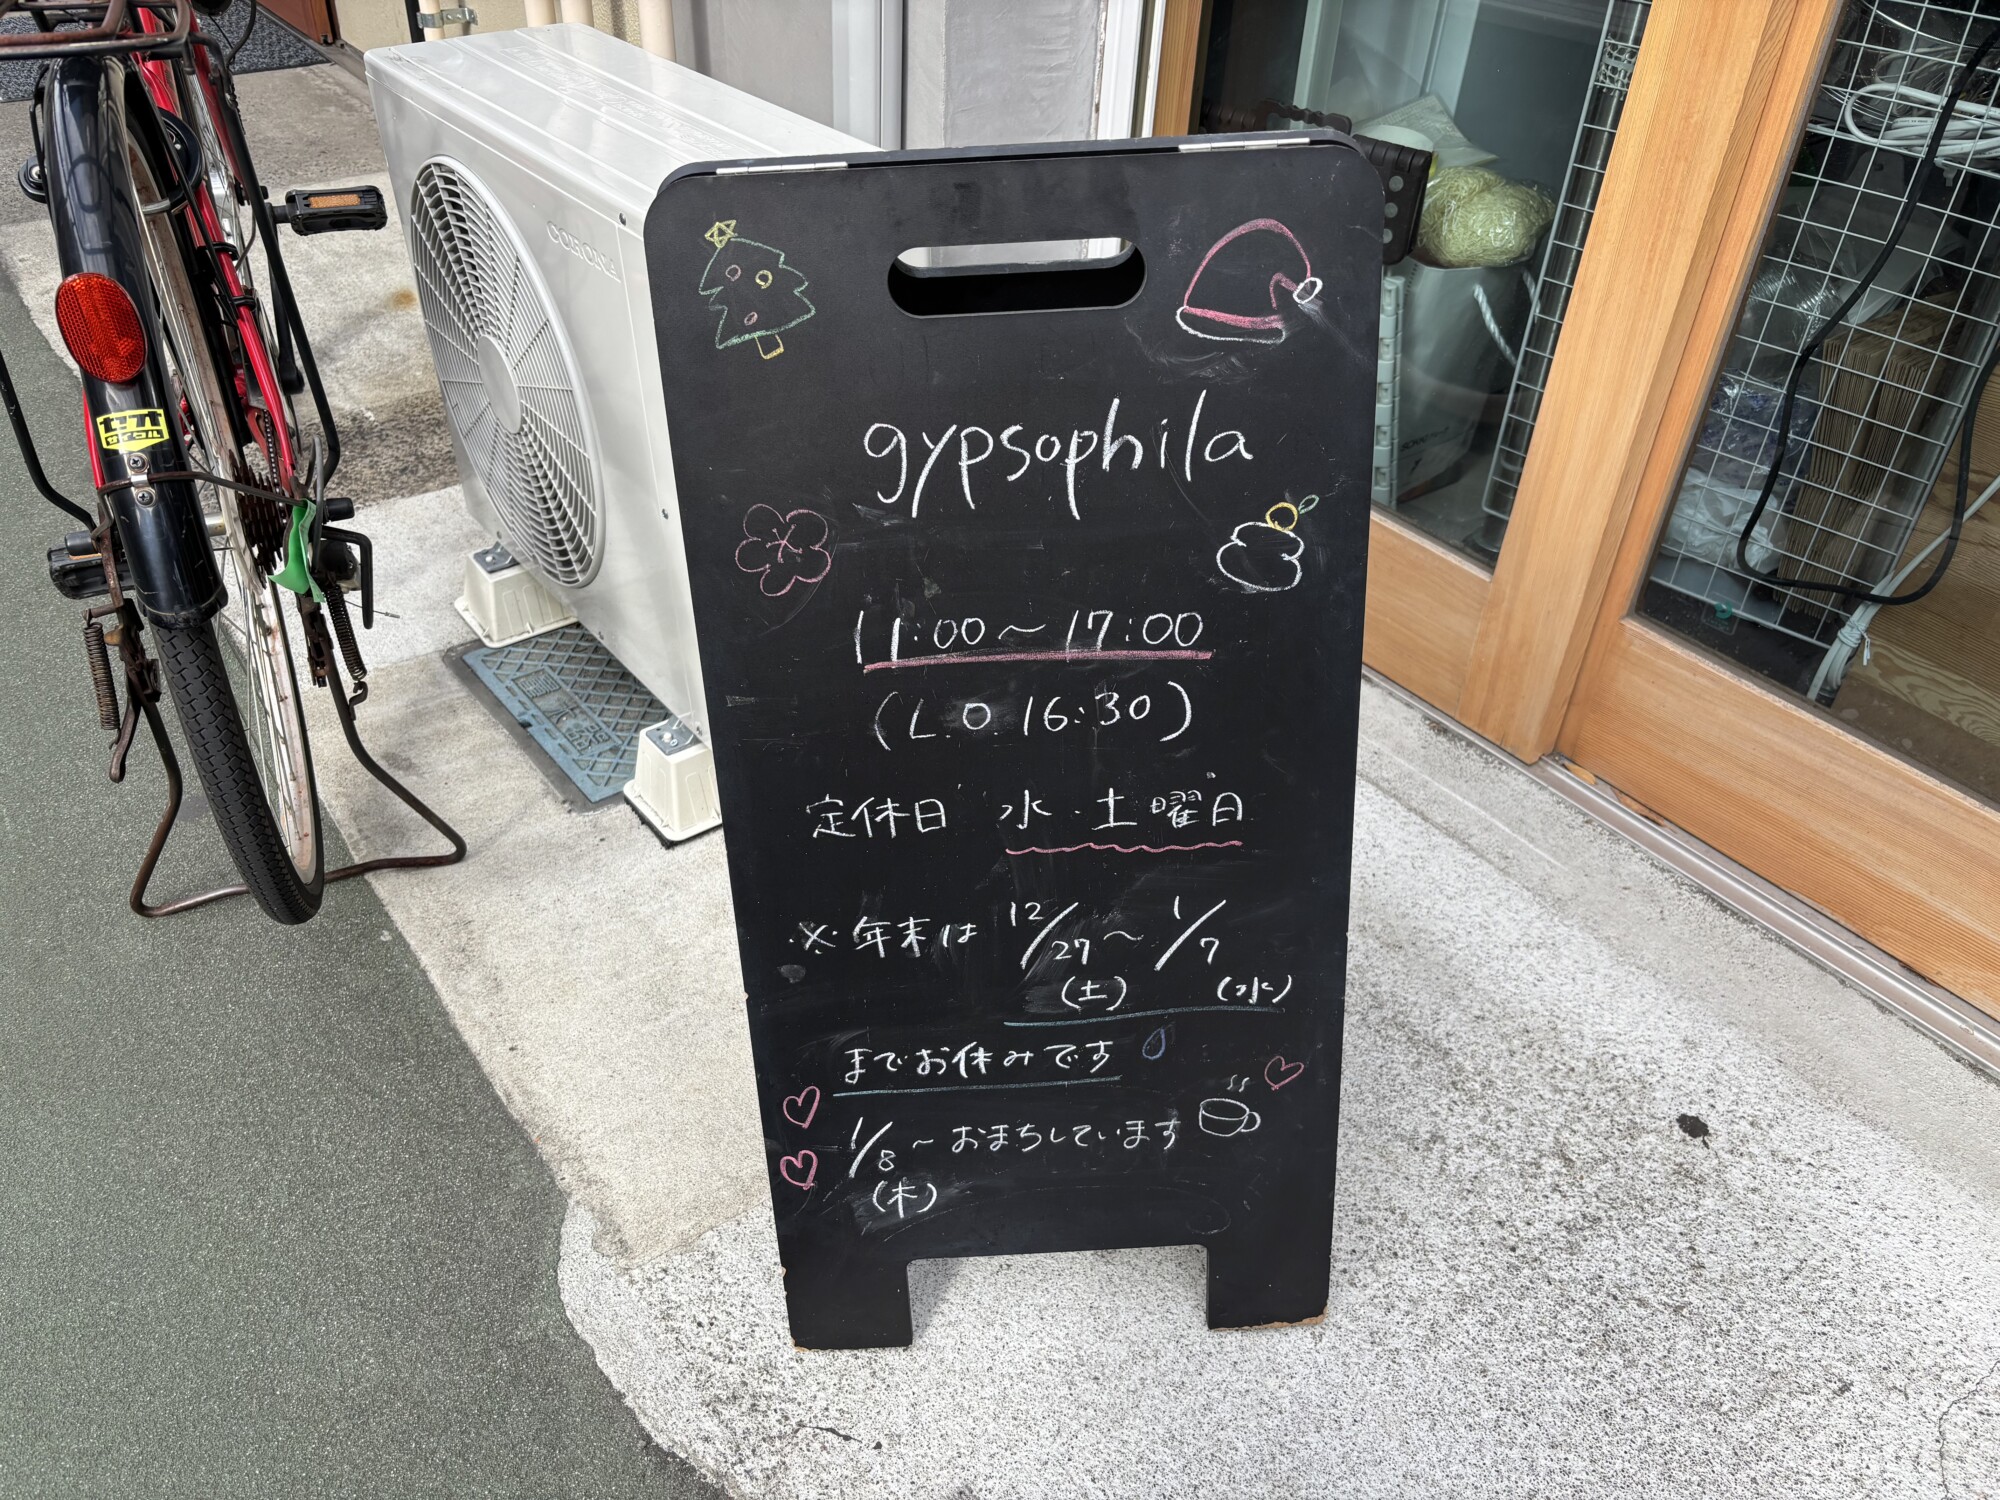 gypsophila
11:00～17:00
(L.O.16:30)
定休日 水・土曜日
※年末は 12/27～1/7
(土) (水)
までお休みです
1/8～おまちしています
(木)
CORONA
セオ
サイクル